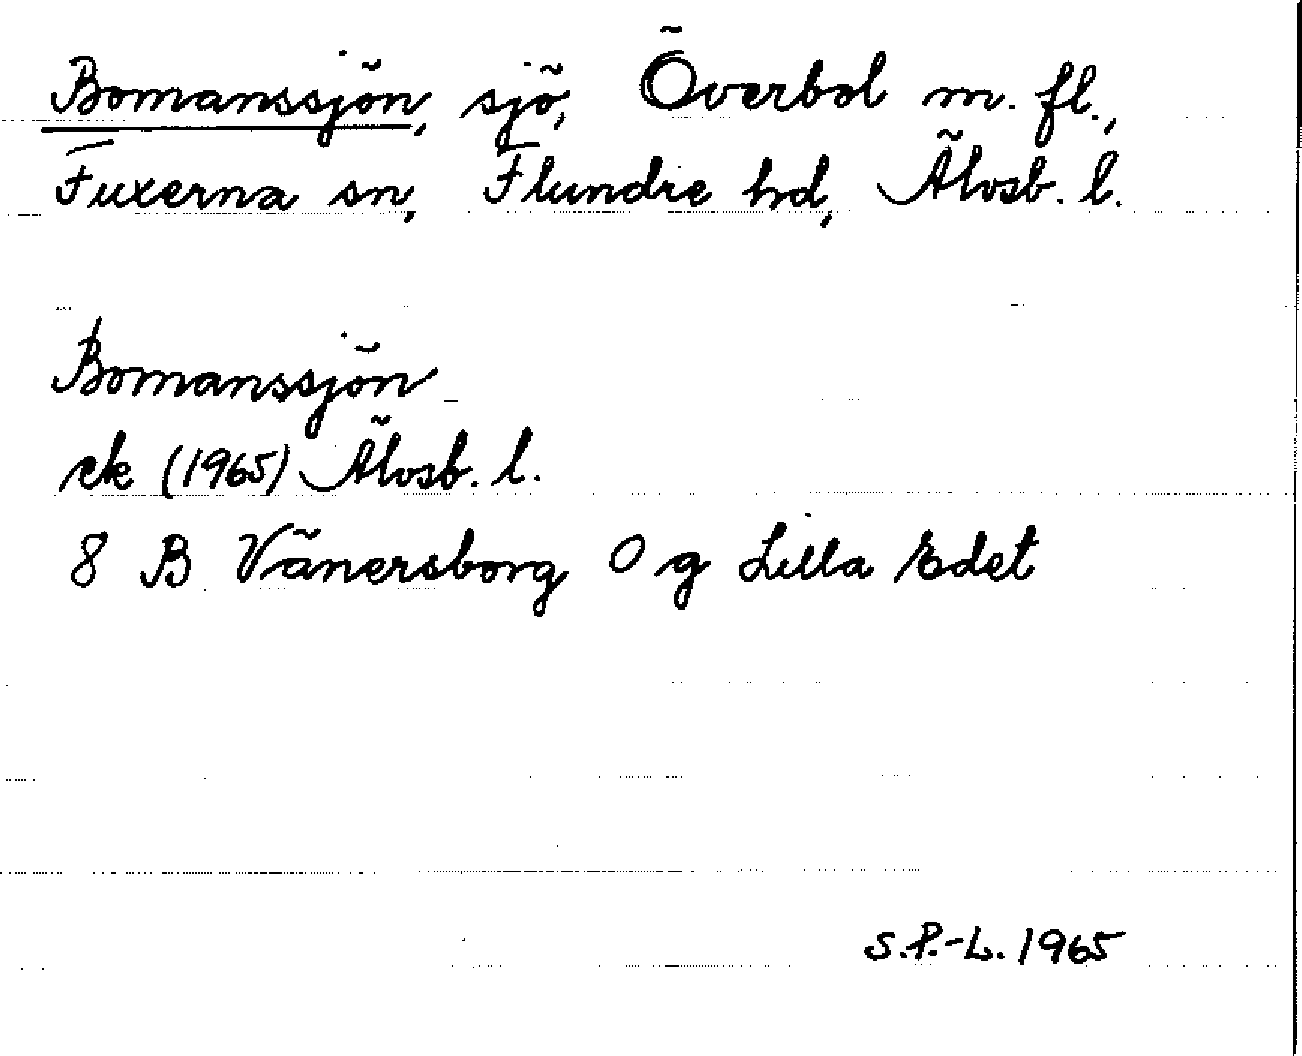 Bomanssjön, sjö, Överbol m. fl.,
Fuxerna sn, Flundre hd, Älvsb. l.
Bomanssjön
ek (1965) Älvsb. l.
8 B Vänersborg 0 g Lilla Edet
S.P.-L. 1965